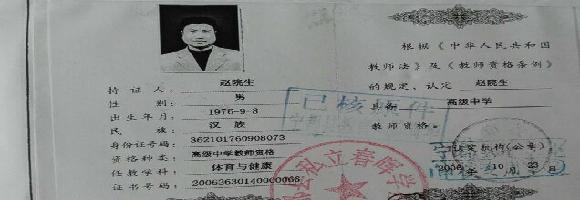 持证人： 赵宪生
性别： 男
出生年月： 1976-9-8
民族： 汉族
身份证号码： 362101760908073
资格种类： 高级中学教师资格
任教学科： 体育与健康
证书号码： 20062630140000066
根据《中华人民共和国
教师法》及《教师资格条例》
的规定，认定 赵宪生
具备 高级中学
教师资格。
认定机构(公章)
2006 年 10 月 23 日
已核原件
私立春晖学